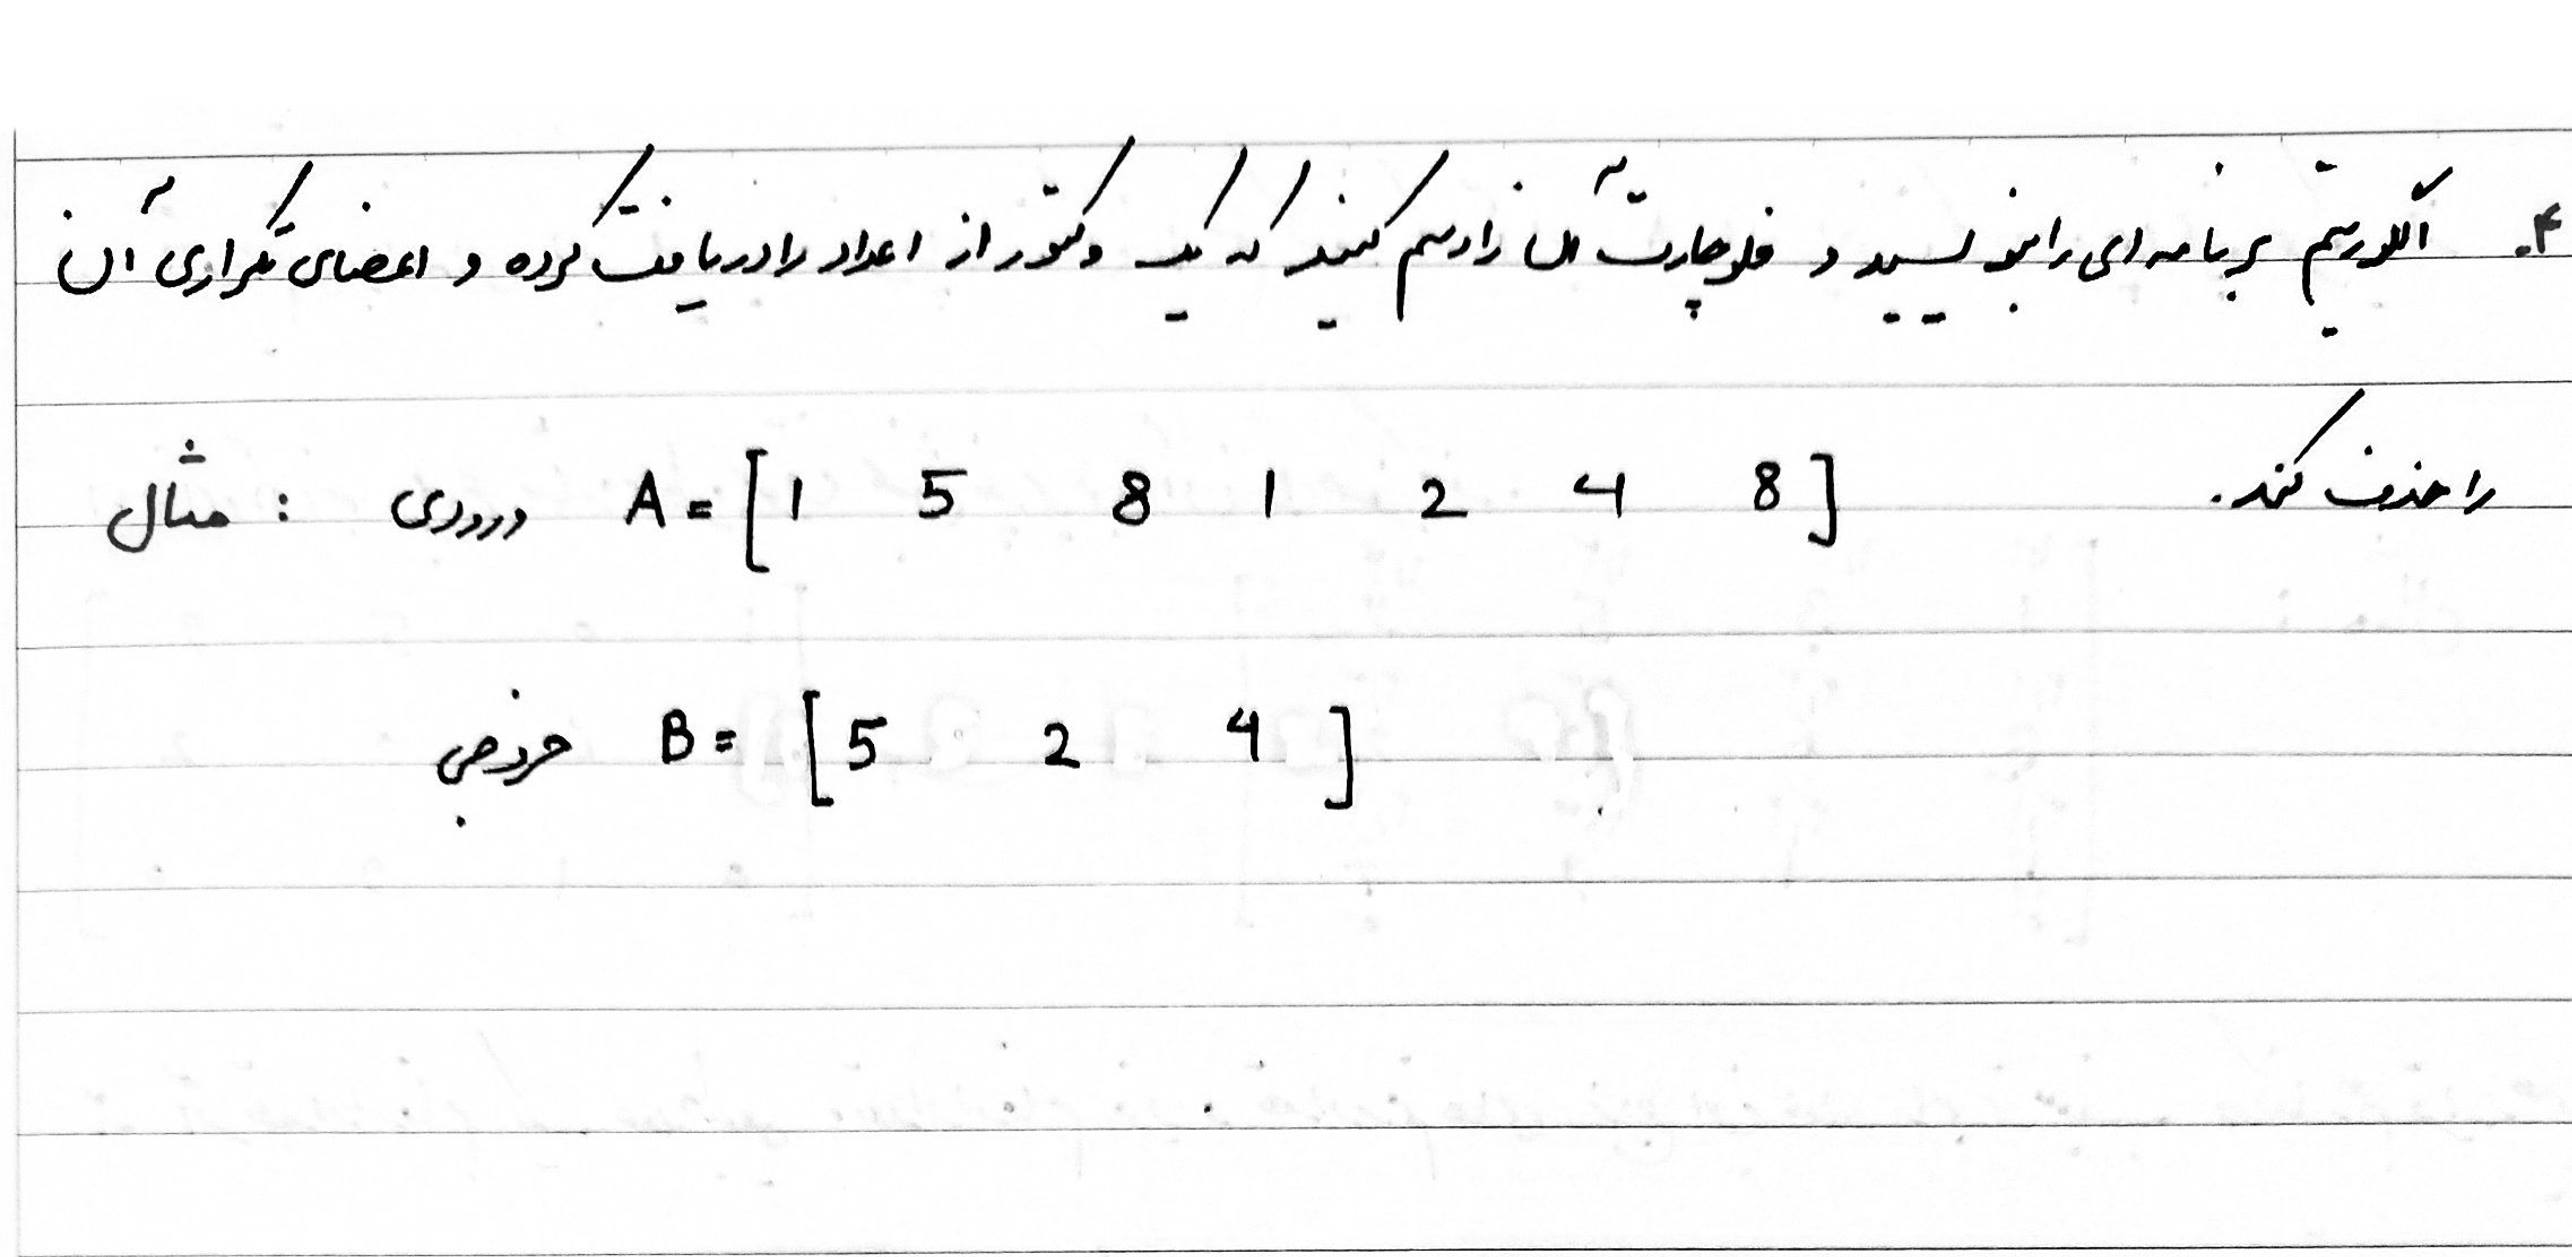 ۴. الگوریتم برنامه ای را بنویسید و فلوچارت آن را رسم کنید که یک وکتور از اعداد را دریافت کرده و اعضای تکراری آن
را حذف کند. مثال : ورودی A = [ 1 5 8 1 2 4 8 ]
خروجی B = [ 5 2 4 ]